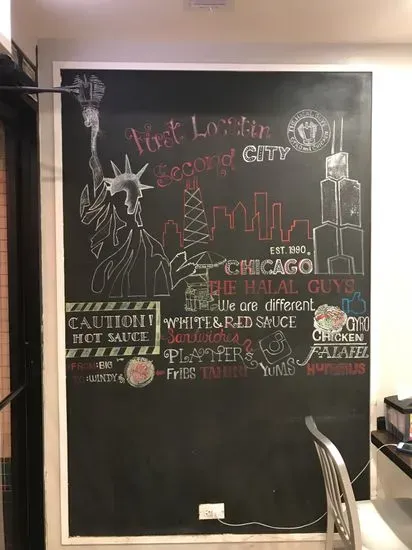 First Locatin
Second CITY
EST. 1990.
CHICAGO
THE HALAL GUYS
We are different
CAUTION!
HOT SAUCE
WHITE & RED SAUCE
Sandwiches
PLATTERS
FRIES TAHINI YUMS
GYRO
CHICKEN
FALAFEL
HUMMUS
FROM: BIG
TO: WINDY